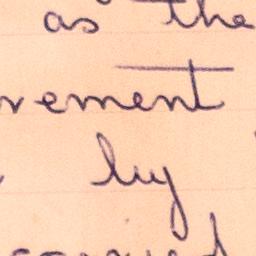 as the
vement
by